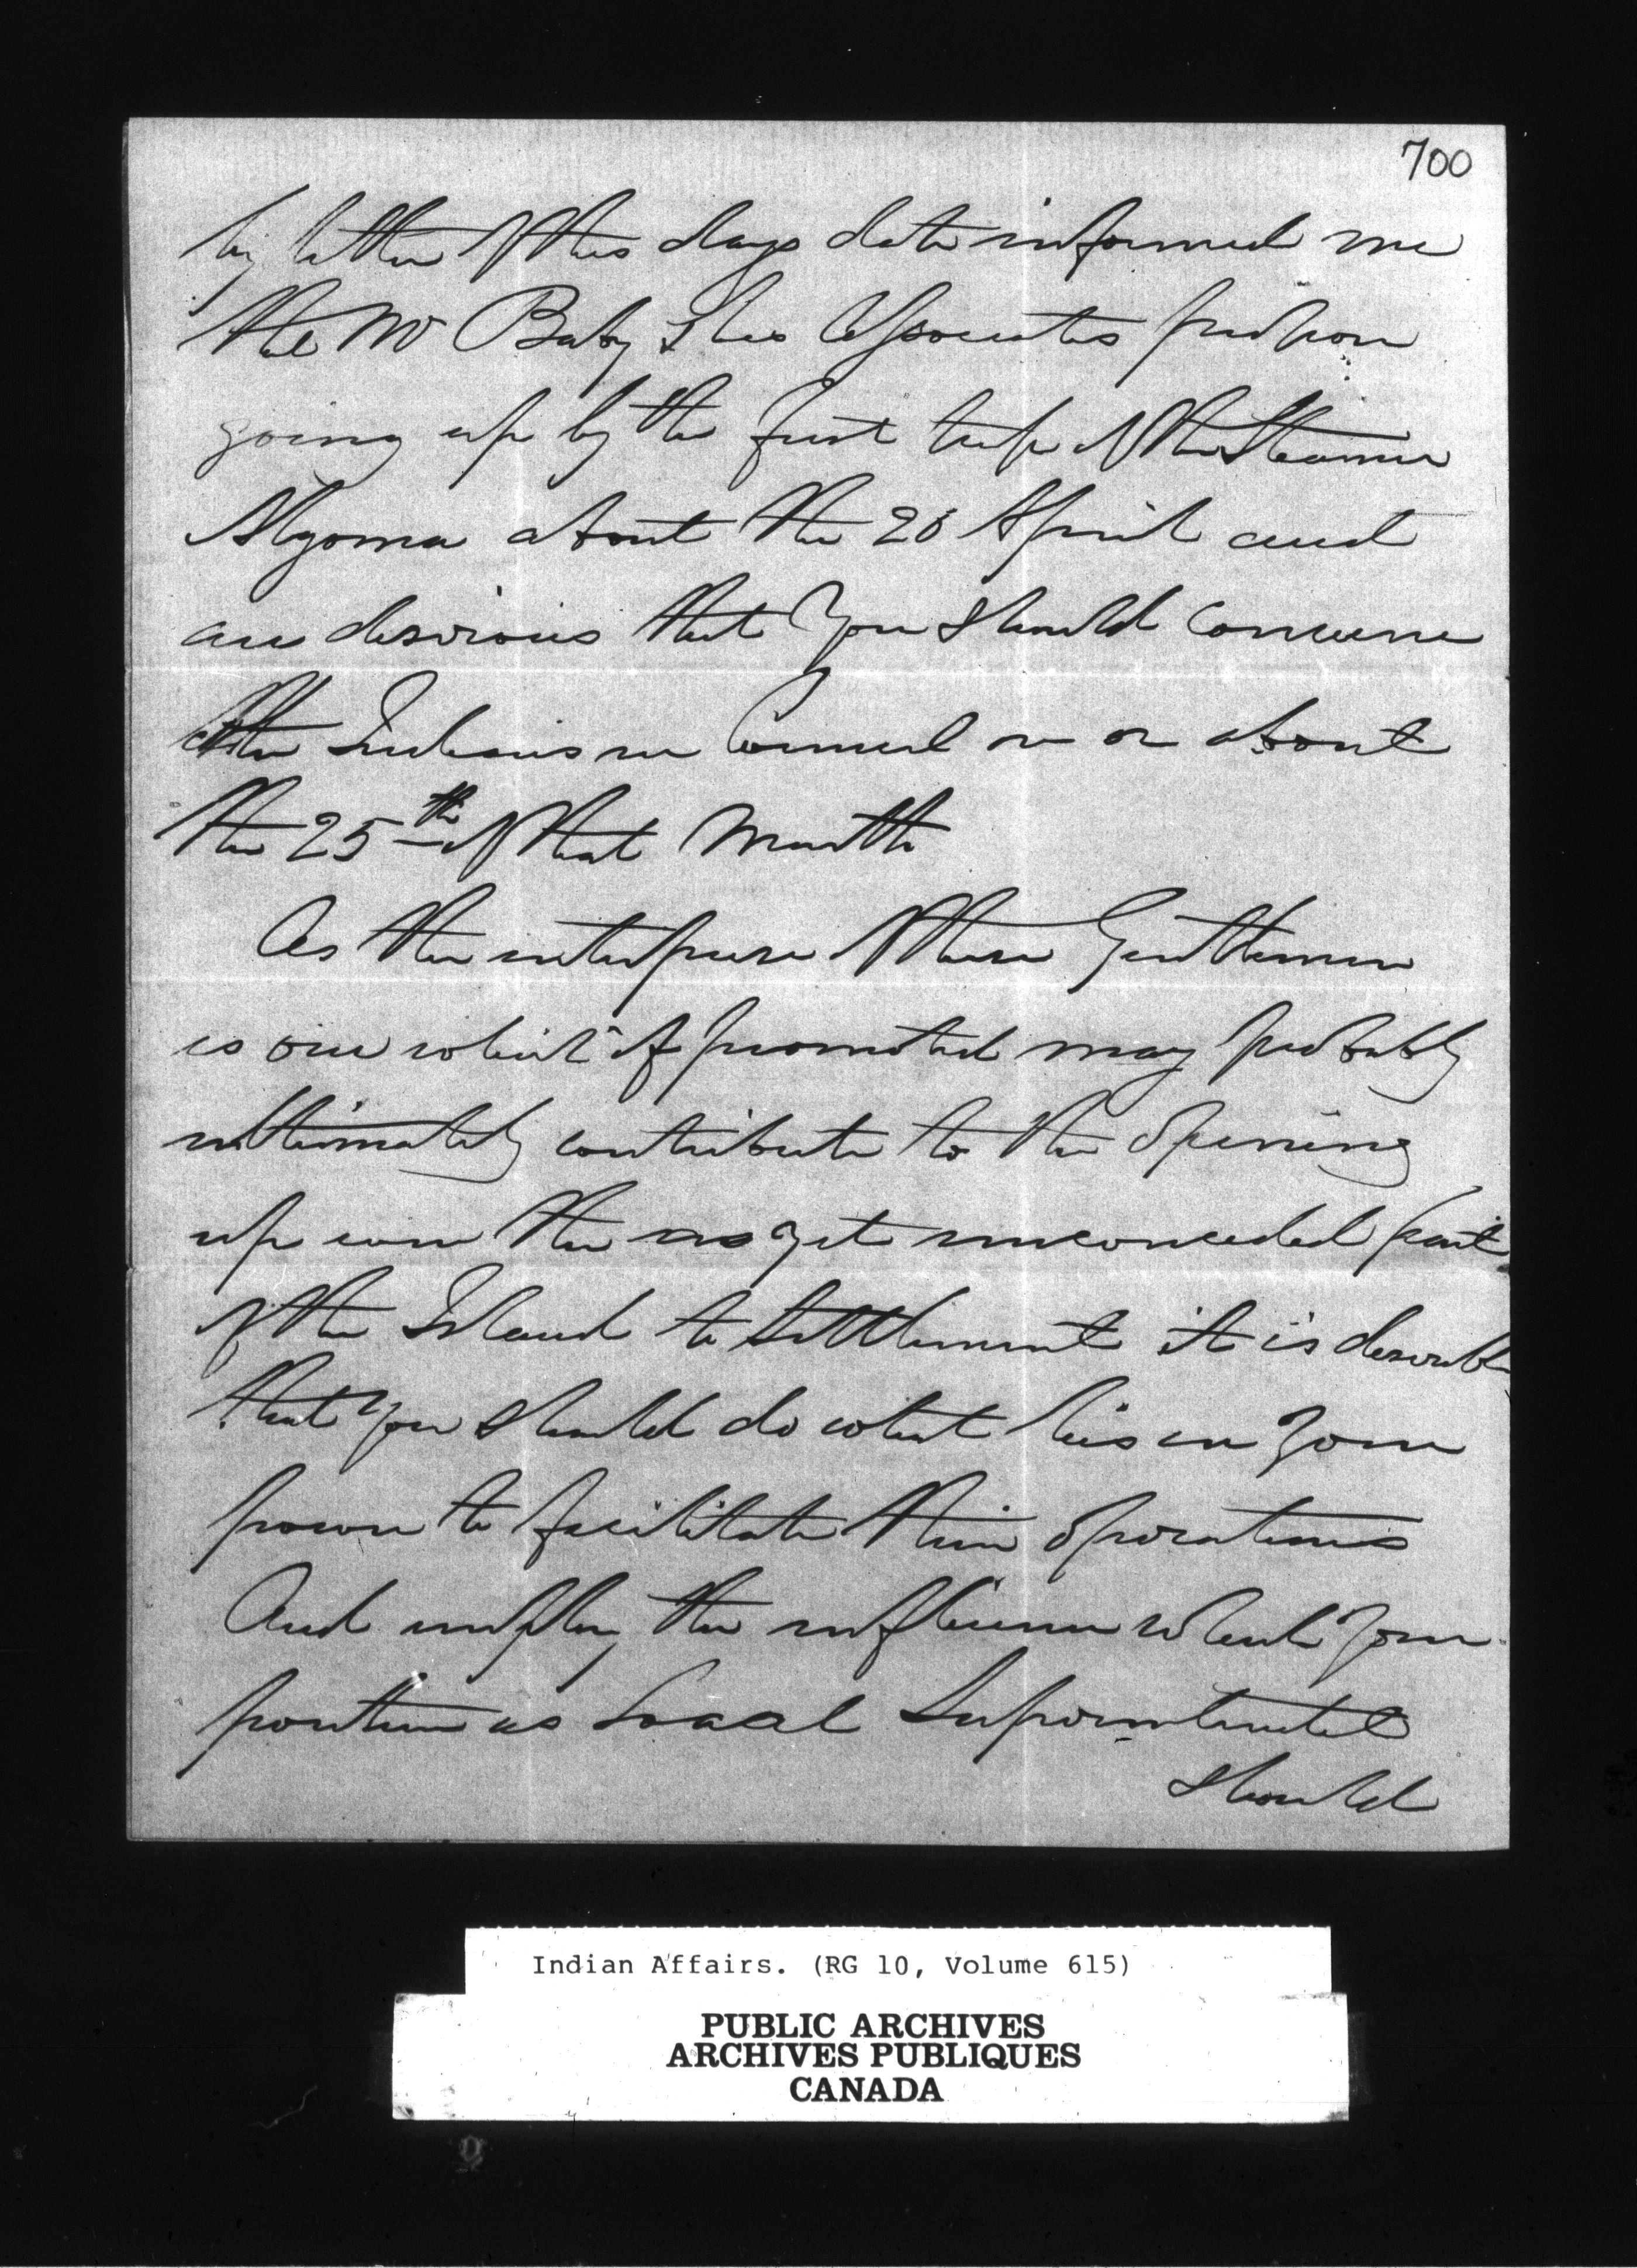 700
by letter of this days date informed me
that Mr Baby & his Associates purpose
going up by the first trip of the Steamer
Algoma about the 20 April and
are desirous that you should convene
the Indians in Council on or about
the 25th of that Month
As the enterprise of these Gentlemen
is one which if promoted may probably
ultimately contribute to the opening
up even the as yet unconceded part
of the Island to Settlement it is desirable
that you should do what lies in your
power to facilitate their operations
And employ the influence which your
position as Local Superintendent
should
Indian Affairs. (RG 10, Volume 615)
PUBLIC ARCHIVES
ARCHIVES PUBLIQUES
CANADA